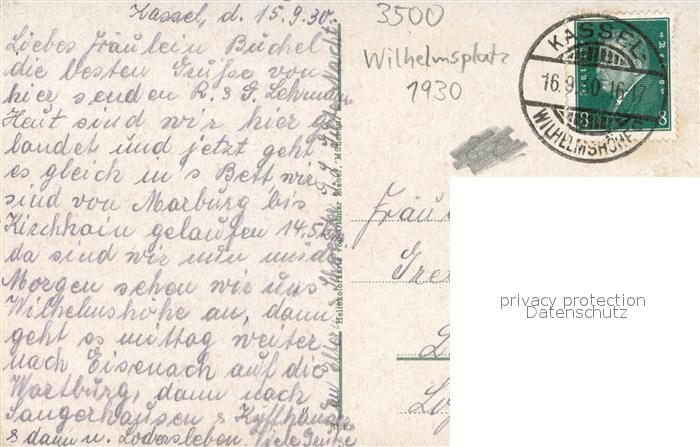 Kassel, d. 15.9.30.
Liebes Fräulein Büchel
die besten Grüße von
hier senden R. & G. Lehmann
Heut sind wir hier ge
landet und jetzt geht
es gleich in's Bett wir
sind von Marburg bis
Kirchhain gelaufen 14.5 km
da sind wir nun müde
Morgen sehen wir uns
Wilhelmshöhe an, dann
geht es mittag weiter
nach Eisenach auf die
Wartburg, dann nach
Sangerhausen & Kyffhäuser
& dann n. Lodersleben. Viele Grüße
an alle
Gute Nacht.
3500
Wilhelmsplatz
1930
KASSEL
16.9.30 16-17
WILHELMSHÖHE
8
Fräu
privacy protection
Datenschutz